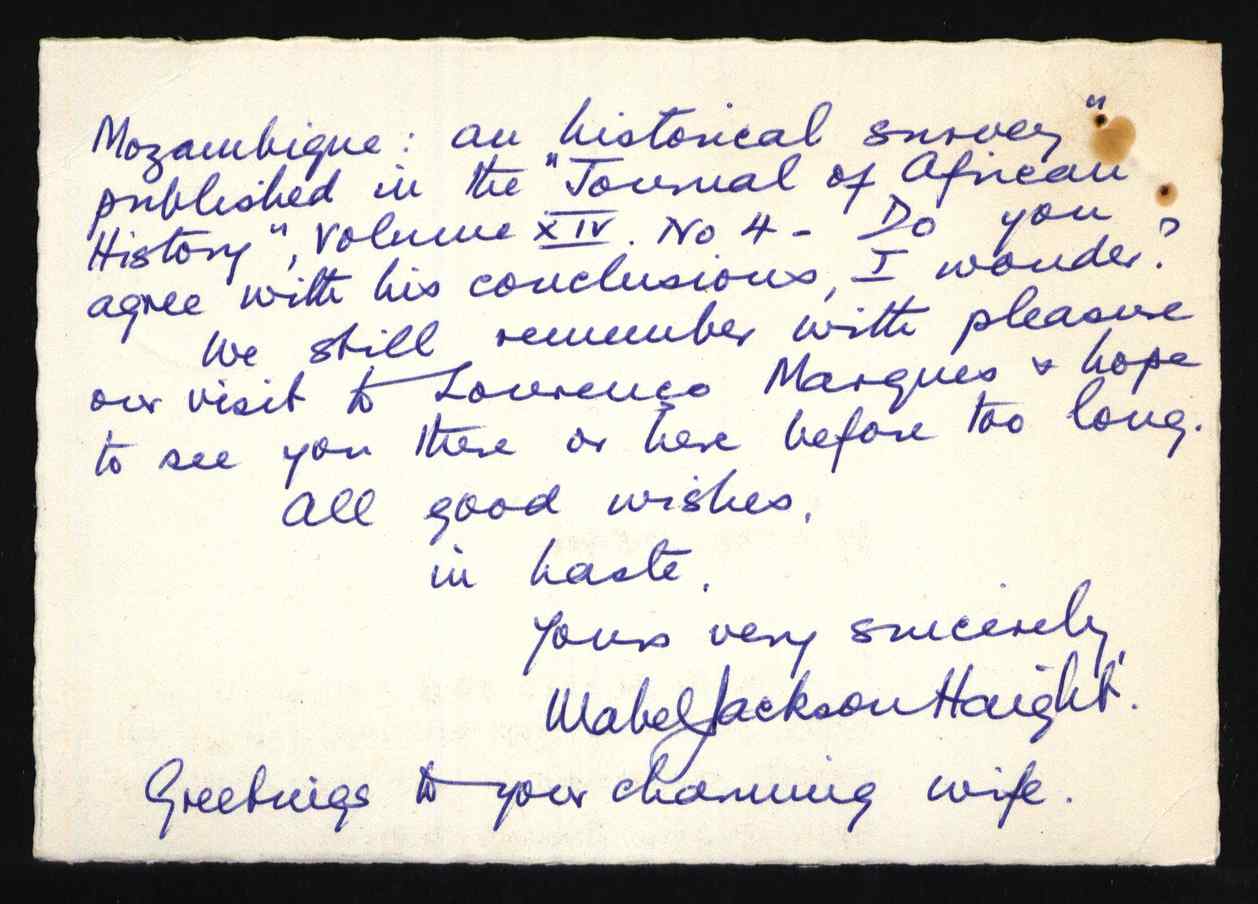 Mozambique: an historical survey"
published in the "Journal of African
History", Volume XIV. No 4 - Do you
agree with his conclusions, I wonder?
We still remember with pleasure
our visit to Lourenço Marques & hope
to see you there or here before too long.
All good wishes,
in haste,
Yours very sincerely,
Mabel Jackson Haight.
Greetings to your charming wife.